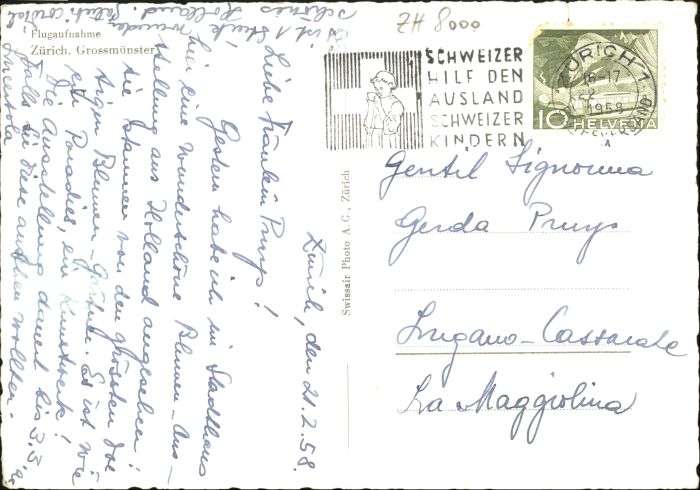 Flugaufnahme
Zürich. Grossmünster
ZH 8000
SCHWEIZER
HILF DEN
AUSLAND
SCHWEIZER
KINDERN
ZÜRICH 1
16-17
22
1958
BRIEFVERSAND
10 HELVETIA
Swissair Photo A. G., Zürich
Zürich, den 21.2.58.
Liebe Fräulein Pruys!
Gestern habe ich im Stadthaus
hier eine wunderschöne Blumen-Aus-
stellung aus Holland angesehen!
Sie stammen von den grössten dor-
tigen Blumen-Gärtner. Es ist wie
ein Paradies, ein Kunstwerk!
Die Ausstellung dauert bis 3.3. 
falls Sie diese ansehen wollten.
Es ist 1 Stück
Schönes Holland.
Gentil Signorina
Gerda Pruys
Lugano-Cassarate
La Maggiolina